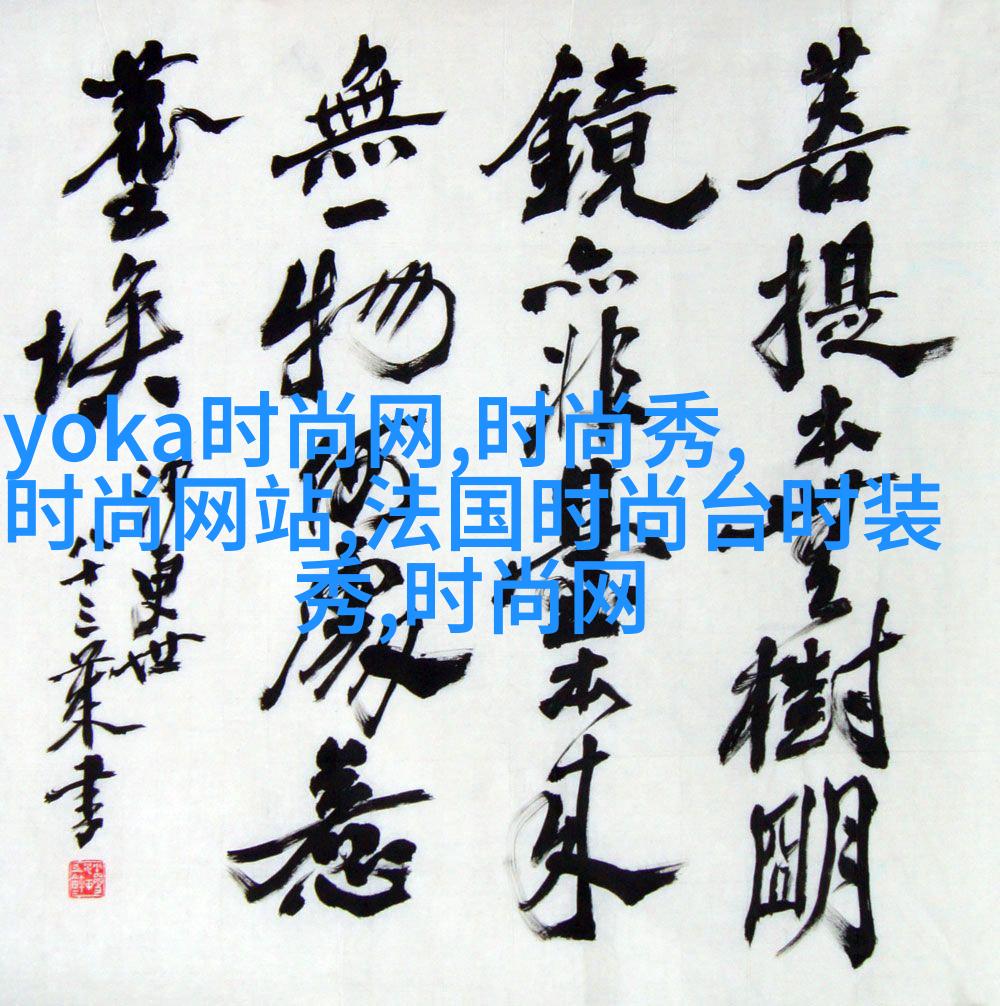 yoka时尚网,时尚秀,
时尚网站,法国时尚台时装
秀,时尚网
菩提本無樹明
鏡亦非臺本来
無一物何處惹
塵埃